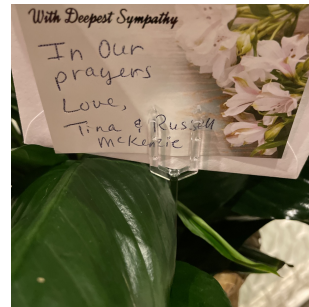 With Deepest Sympathy
In Our
prayers
Love,
Tina & Russell
McKenzie